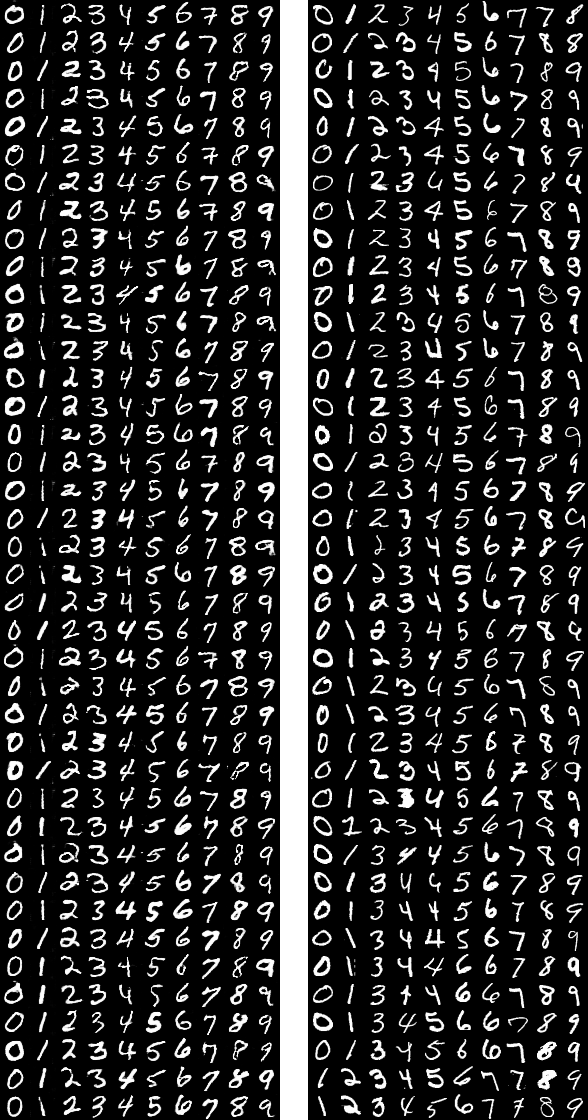 0 1 2 3 4 5 6 7 8 9
0 1 2 3 4 5 6 7 8 9
0 1 2 3 4 5 6 7 8 9
0 1 2 3 4 5 6 7 8 9
0 1 2 3 4 5 6 7 8 9
0 1 2 3 4 5 6 7 8 9
0 1 2 3 4 5 6 7 8 9
0 1 2 3 4 5 6 7 8 9
0 1 2 3 4 5 6 7 8 9
0 1 2 3 4 5 6 7 8 9
0 1 2 3 4 5 6 7 8 9
0 1 2 3 4 5 6 7 8 9
0 1 2 3 4 5 6 7 8 9
0 1 2 3 4 5 6 7 8 9
0 1 2 3 4 5 6 7 8 9
0 1 2 3 4 5 6 7 8 9
0 1 2 3 4 5 6 7 8 9
0 1 2 3 4 5 6 7 8 9
0 1 2 3 4 5 6 7 8 9
0 1 2 3 4 5 6 7 8 9
0 1 2 3 4 5 6 7 8 9
0 1 2 3 4 5 6 7 8 9
0 1 2 3 4 5 6 7 8 9
0 1 2 3 4 5 6 7 8 9
0 1 2 3 4 5 6 7 8 9
0 1 2 3 4 5 6 7 8 9
0 1 2 3 4 5 6 7 8 9
0 1 2 3 4 5 6 7 8 9
0 1 2 3 4 5 6 7 8 9
0 1 2 3 4 5 6 7 8 9
0 1 2 3 4 5 6 7 8 9
0 1 2 3 4 5 6 7 8 9
0 1 2 3 4 5 6 7 8 9
0 1 2 3 4 5 6 7 8 9
0 1 2 3 4 5 6 7 8 9
0 1 2 3 4 5 6 7 8 9
0 1 2 3 4 5 6 7 8 9
0 1 2 3 4 5 6 7 8 9
0 1 2 3 4 5 6 7 8 9
0 1 2 3 4 5 6 7 8 9
0 1 2 3 4 5 6 7 7 8
0 1 2 3 4 5 6 7 8 8
0 1 2 3 4 5 6 7 8 9
0 1 2 3 4 5 6 7 8 9
0 1 2 3 4 5 6 7 8 9
0 1 2 3 4 5 6 7 8 9
0 1 2 3 4 5 6 7 8 4
0 1 2 3 4 5 6 7 8 9
0 1 2 3 4 5 6 7 8 9
0 1 2 3 4 5 6 7 8 8
0 1 2 3 4 5 6 7 8 9
0 1 2 3 4 5 6 7 8 9
0 1 2 3 4 5 6 7 8 9
0 1 2 3 4 5 6 7 8 9
0 1 2 3 4 5 6 7 8 9
0 1 2 3 4 5 6 7 8 9
0 1 2 3 4 5 6 7 8 9
0 1 2 3 4 5 6 7 8 9
0 1 2 3 4 5 6 7 8 0
0 1 2 3 4 5 6 7 8 9
0 1 2 3 4 5 6 7 8 9
0 1 2 3 4 5 6 7 8 9
0 1 2 3 4 5 6 7 8
0 1 2 3 4 5 6 7 8 9
0 1 2 3 4 5 6 7 8 9
0 1 2 3 4 5 6 7 8 9
0 1 2 3 4 5 6 7 8 9
0 1 2 3 4 5 6 7 8 9
0 1 2 3 4 5 6 7 8 9
0 1 2 3 4 5 6 7 8 9
0 1 3 4 4 5 6 7 8 9
0 1 3 4 6 5 6 7 8 9
0 1 3 4 4 5 6 7 8 9
0 1 3 4 4 5 6 7 8 9
0 1 3 4 4 6 6 7 8 9
0 1 3 4 4 6 6 7 8 9
0 1 3 4 5 6 6 7 8 9
0 1 3 4 5 6 6 7 8 9
1 2 3 4 5 6 7 7 8 9
1 2 3 4 5 6 7 7 8 9